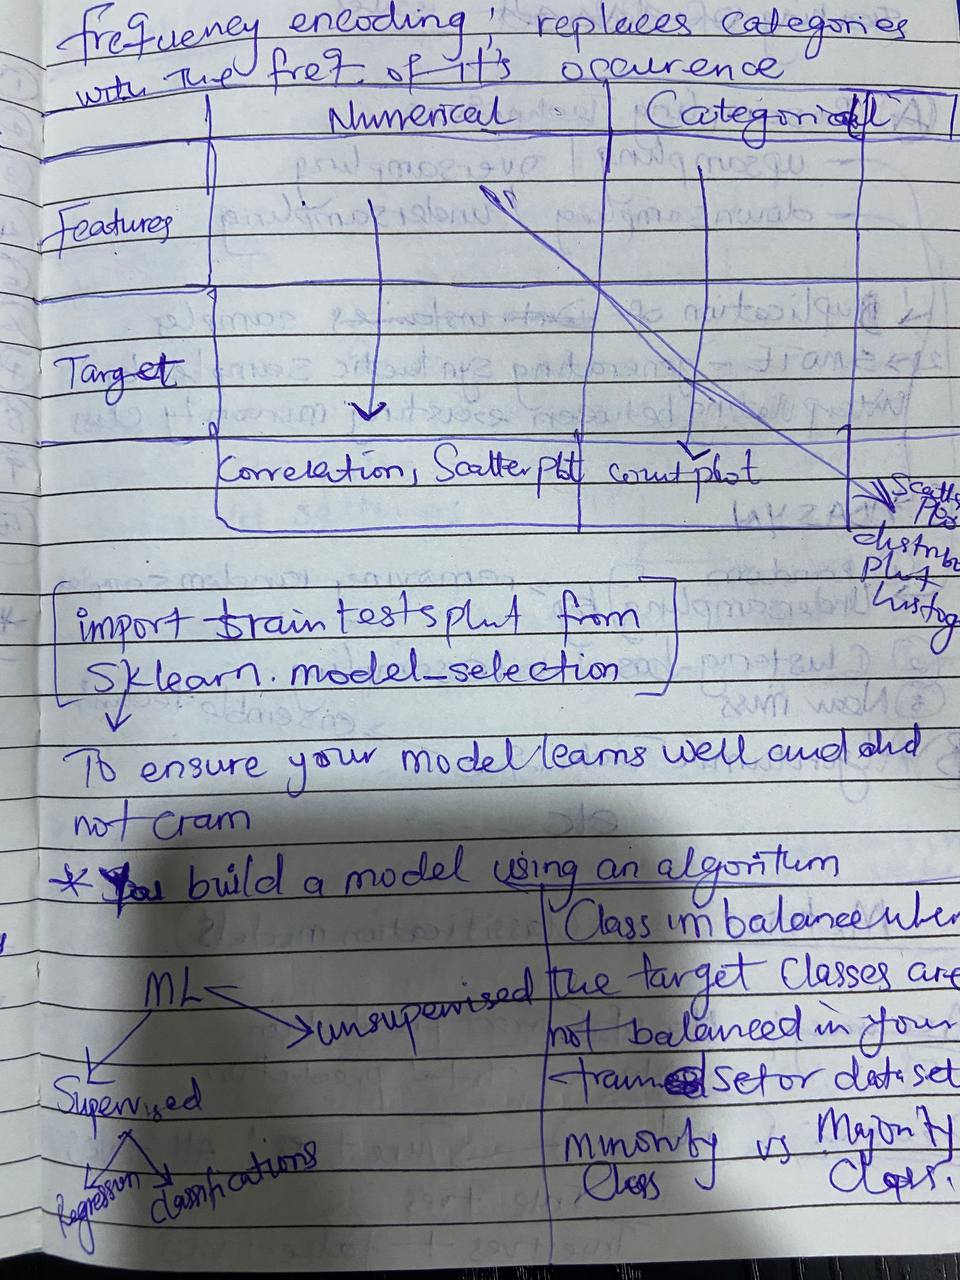 frequency encoding; replaces categories
with the freq. of it's occurence
Numerical Categorical
Features
Target
Correlation, Scatterplot countplot
Scatter
Plot
distrib
Plot
histog
import train testsplit from
Sklearn. model_selection
To ensure your model learns well and did
not cram
* You build a model using an algorithm
ML
unsupervised
Supervised
Regression classifications
Class imbalance when
the target classes are
not balanced in your
trained set or data set
minority vs Majority
Class Class.